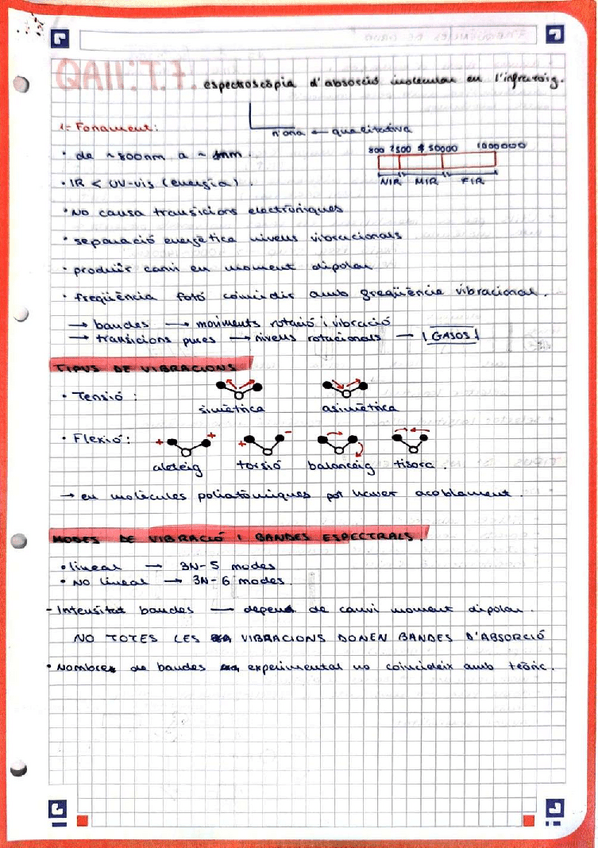 QAII: T.7. espectroscòpia d'absorció molecular en l'infraroig.
n'ona ← qualitativa
1- Fonament:
800 2500 50000 1000000
NIR MIR FIR
· de ~800nm a ~ 1mm.
· IR < UV-vis (energia).
· No causa transicions electròniques
· separació energètica nivells vibracionals
· produïr canvi en moment dipolar
· freqüència fotó coincidir amb freqüència vibracional.
→ bandes → moviments rotació i vibració
→ transicions pures → nivells rotacionals → GASOS
TIPUS DE VIBRACIONS
· Tensió :
simètrica asimètrica
· Flexió :
+ + + -
aleteig torsió balanceig tisora.
→ en molècules poliatòmiques pot haver acoblament.
MODES DE VIBRACIÓ I BANDES ESPECTRALS.
· lineal → 3N-5 modes
· No lineal → 3N-6 modes.
- Intensitat bandes — depen de canvi moment dipolar.
NO TOTES LES VIBRACIONS DONEN BANDES D'ABSORCIÓ
· Nombre de bandes experimental no coincideix amb teòric.